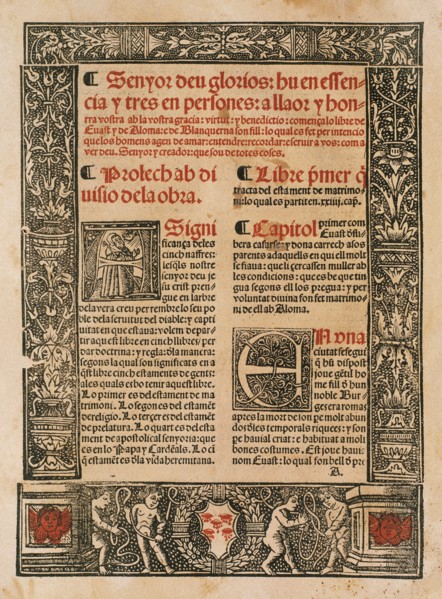 ¶ Senyor deu glorios: hu en essen-
cia y tres en persones: a llaor y hon-
rra vostra ab la vostra gracia: virtut: y benedictio: comença lo libre de
Euast y de Aloma: e de Blanquerna son fill: lo qual es fet per intencio
que los homens agen de amar: entendre: recordar: e seruir a vos: com a
ver deu. Senyor y creador: que sou de totes coses.
¶ Prolech ab di
uisio dela obra.
Signi
ficança deles
cinch naffres:
les q̃ls nostre
senyor deu je
su crist pren-
gue en larbre
dela vera creu per rembre lo seu po
ble dela seruitut del diable: y capti
uitat en que estaua: volem depar-
tir aquest libre en cinch libres: per
dar doctrina: y regla: d̃la manera:
segons la qual son significats en a
q̃st libre cinch estaments de gents:
ales quals es bo tenir aquest libre.
Lo primer es del estament de ma
trimoni. Lo segon es del estamẽt
de religio. Lo tercer es del estamẽt
de prelatura. Lo quart es del esta
ment de apostolical senyoria: que
es en lo Papa y Cardẽals. Lo ci
q̃ estamẽt es d̃la vida hermitana.
¶ Libre p̃mer q̃
tracta del estament de matrimo-
ni: lo qual es partit en .xxiij. cap.
¶ Capitol primer com
Euast d̃lli-
bera casarse: y dona carrech a sos
parents a daquells en qui ell molt
se fiaua: que li cercassen muller ab
les condicions: que ces de que tin
gua segons ell los pregua: y per
voluntat diuina son fet matrimo-
ni de ell ab Aloma.
En vna
ciutat se segui
q̃ hũ dispost
joue gẽtil ho
me fill d̃ hun
noble Bur-
ges era romas
apres la mort de son pe molt abun
dos d̃les temporals riquees: y son
pe hauial criat: e habituat a moli
bones costumes. Est joue hauie
nom Euast: lo qual son bell d̃ pre
A.